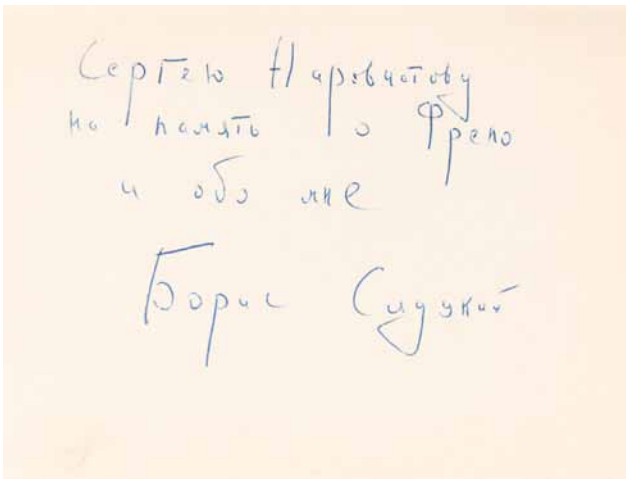 Сергею Наровчатову
на память о Фрейо
и обо мне
Борис Слуцкий